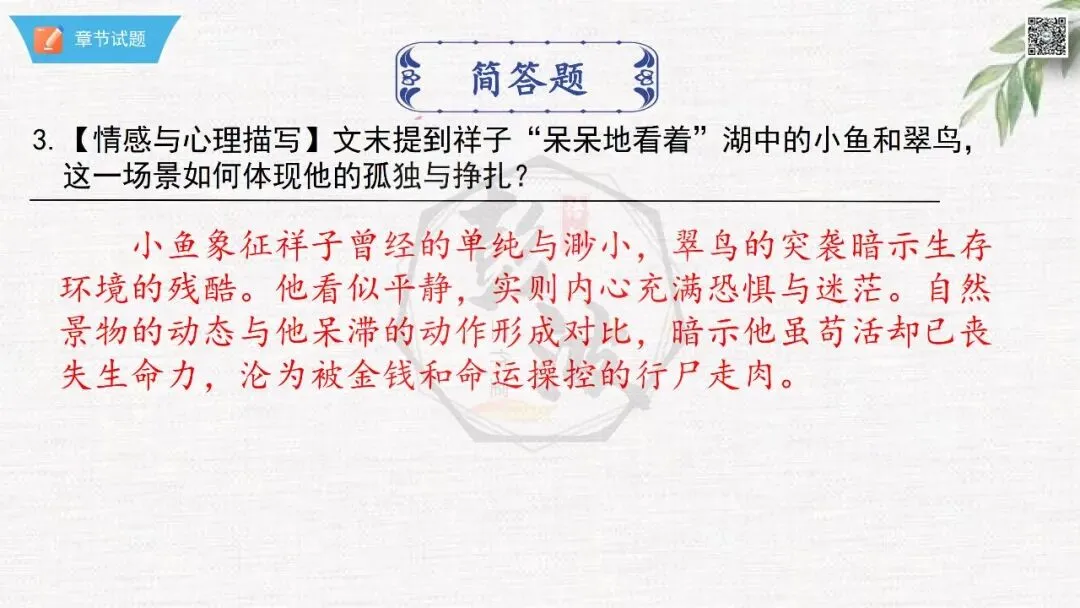 章节试题
简答题
3.【情感与心理描写】文末提到祥子“呆呆地看着”湖中的小鱼和翠鸟，
这一场景如何体现他的孤独与挣扎？
小鱼象征祥子曾经的单纯与渺小，翠鸟的突袭暗示生存
环境的残酷。他看似平静，实则内心充满恐惧与迷茫。自然
景物的动态与他呆滞的动作形成对比，暗示他虽苟活却已丧
失生命力，沦为被金钱和命运操控的行尸走肉。